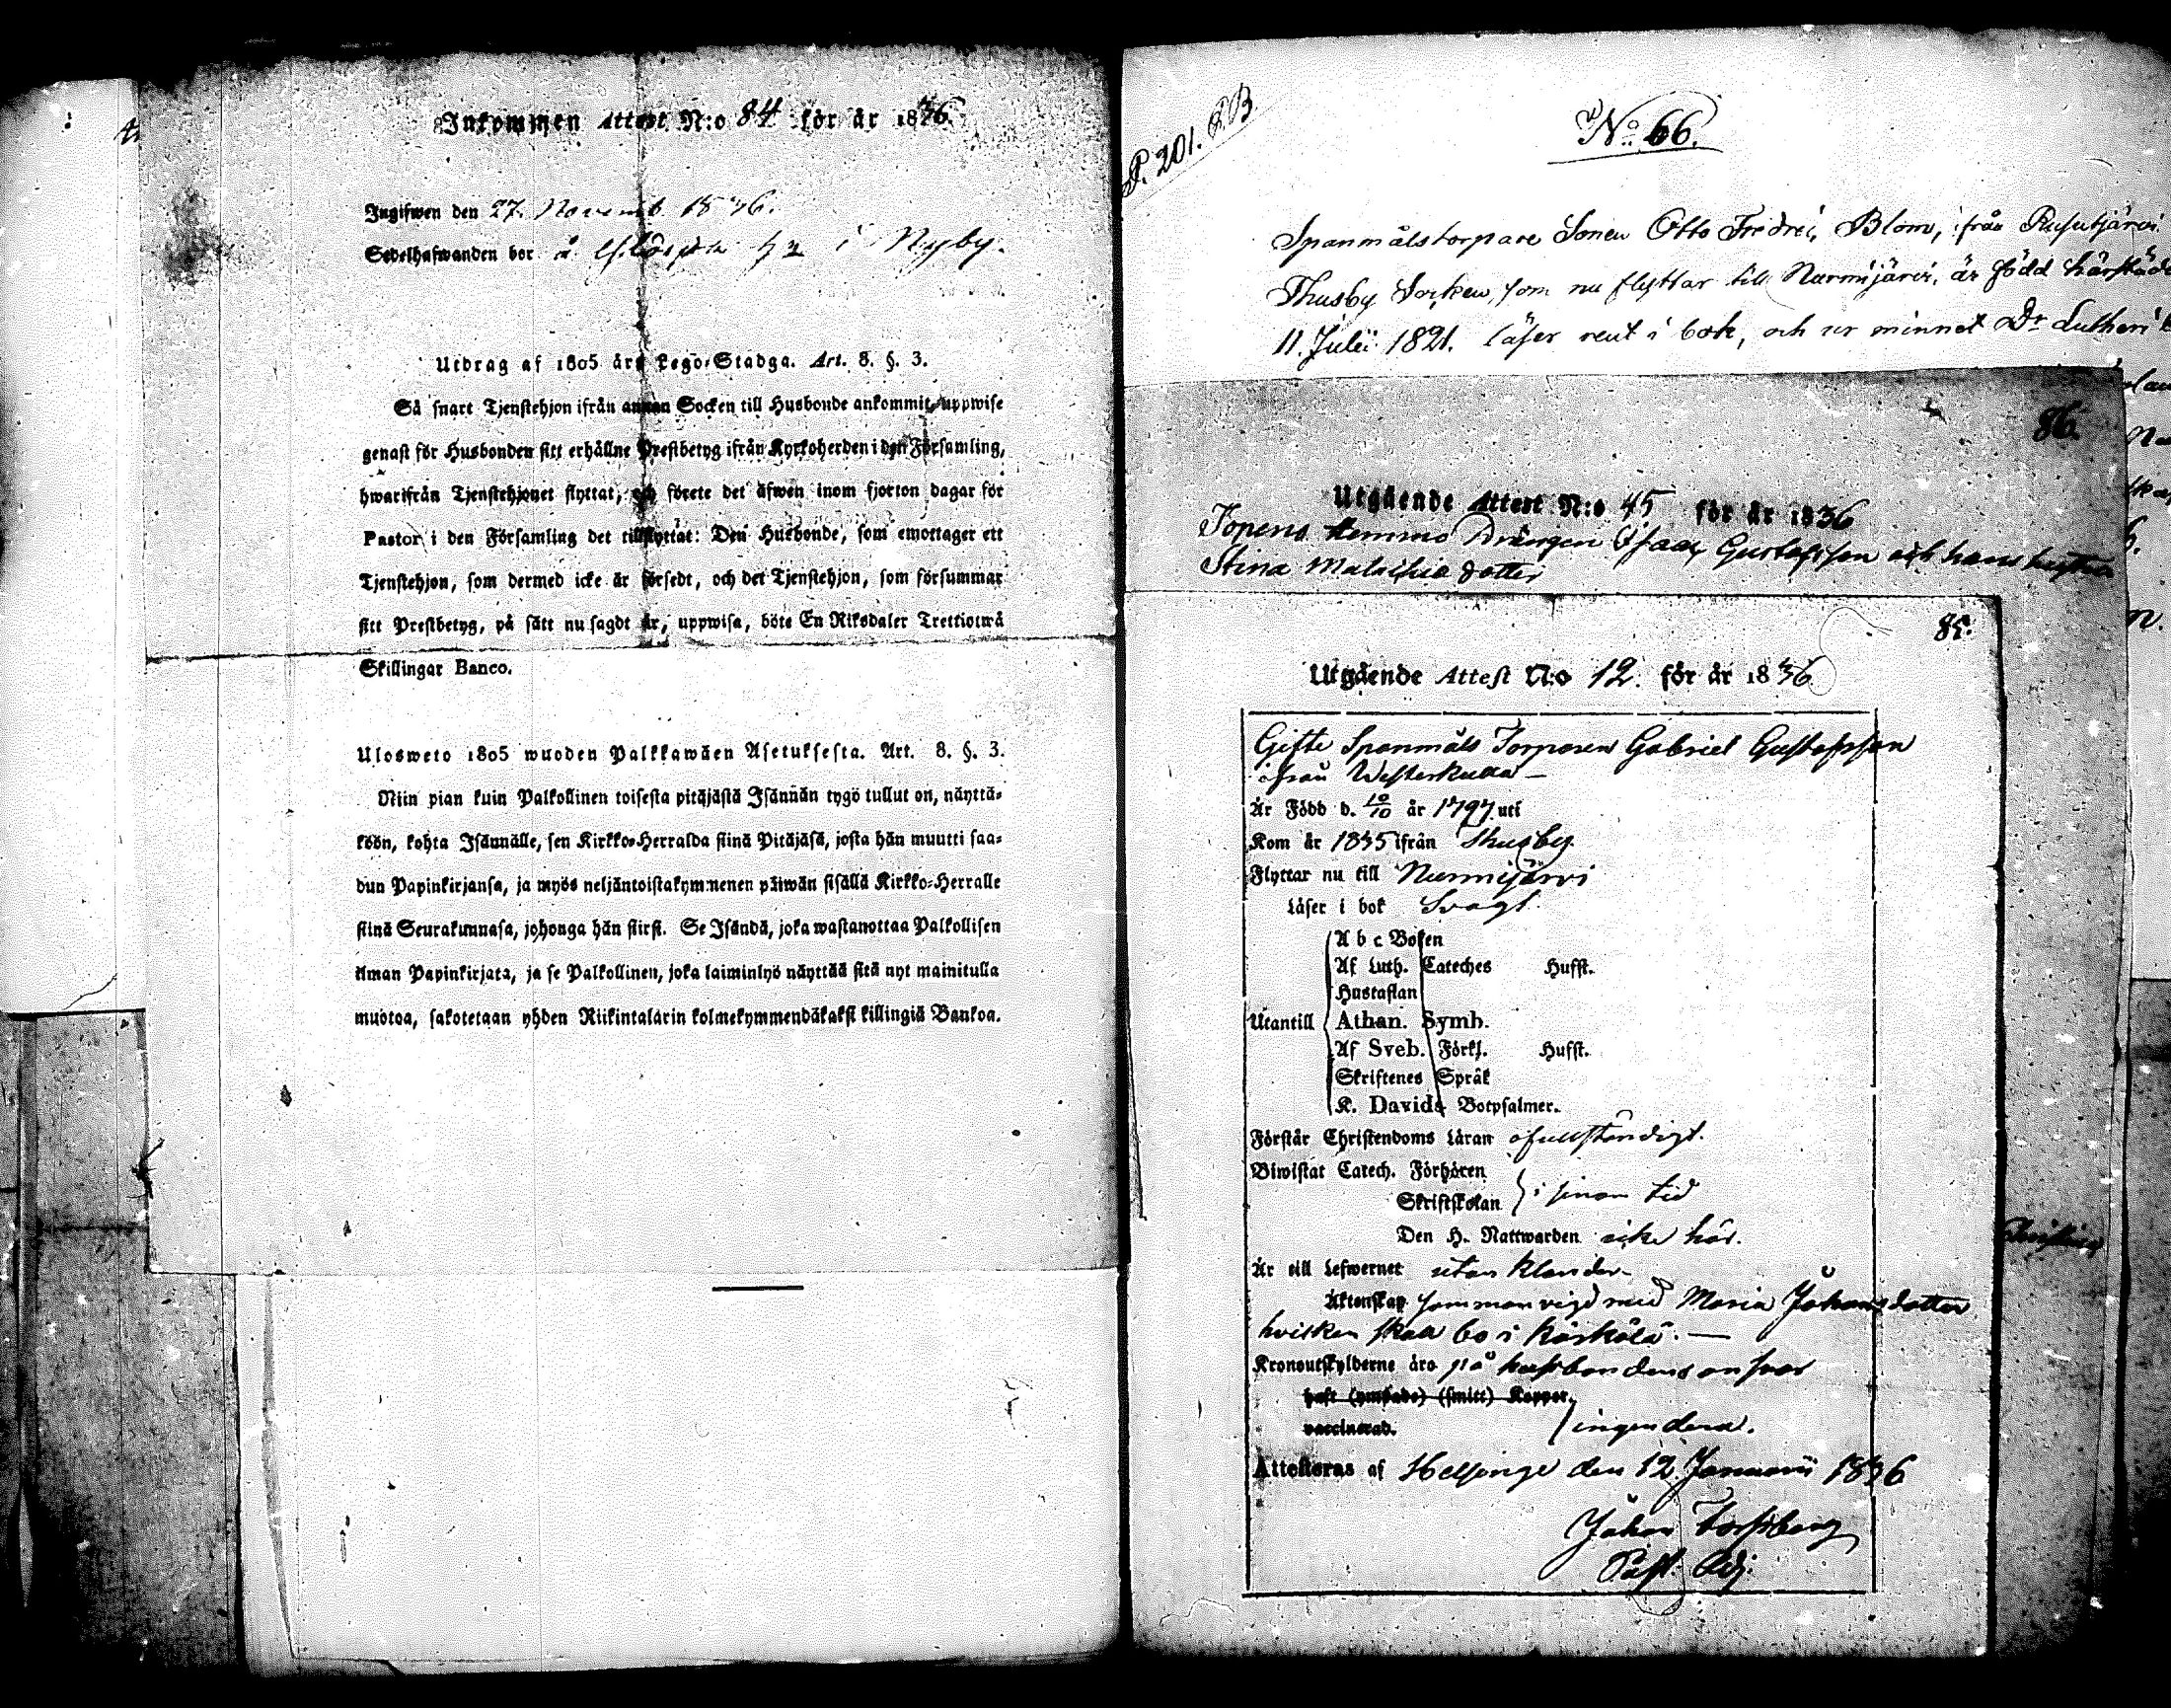 Inkommen Attest N:o 84 för år 1836
Ingifwen den 27. Novemb. 1836.
Sedelhafwanden bor å i Nyby.
Utdrag af 1805 års Lego-Stadga. Art. 8. §. 3.
Så snart Tjenstehjon ifrån annan Socken till Husbonde ankommit, uppwise
genast för Husbonden sitt erhållne Prestbetyg ifrån Kyrkoherden i den Församling,
hwarifrån Tjenstehjonet flyttat, och förete det äfwen inom fjorton dagar för
Pastor i den Församling det tillflyttat: Den Husbonde, som emottager ett
Tjenstehjon, som dermed icke är försedt, och det Tjenstehjon, som försummar
sitt Prestbetyg, på sätt nu sagdt är, uppwisa, böte En Riksdaler Trettiotwå
Skillingar Banco.
Ulosweto 1805 wuoden Palkkawäen Asetuksesta. Art. 8. §. 3.
Niin pian kuin Palkollinen toisesta pitäjästä Isännän tygö tullut on, näyttä-
köön, kohta Isännälle, sen Kirkko-Herralda siinä Pitäjäsä, josta hän muutti saa-
dun Papinkirjansa, ja myös neljäntoistakymmenen päiwän sisällä Kirkko-Herralle
siinä Seurakunnasa, johonga hän siirsi. Se Isändä, joka wastanottaa Palkollisen
ilman Papinkirjata, ja se Palkollinen, joka laiminlyö näyttää sitä nyt mainitulla
muotoa, sakotetaan yhden Riikintalarin kolmekymmendäkaksi killingiä Bankoa.
P. 201. P.B.
No 66.
Spanmålstorpare Sonen Otto Fredric Blom, ifrån Rusutjärvi
Thusby Socken, som nu flyttar till Nurmijärvi, är född härstädes
11. Julii 1821. läser rent i bok, och ur minnet Dr Lutheri
86.
Utgående Attest N:o 45 för år 1836
Torpens hemmo Drängen Isaac Gustafsson och hans hustru
Stina Malachia dotter
85.
Utgående Attest N:o 12. för år 1836
Gifte Spanmåls Torparen Gabriel Gustafsson
ifrån Westerkulla —
Är Född d. 10/10 år 1797 uti
Kom år 1835 ifrån Thusby.
Flyttar nu till Nurmijärvi
Läser i bok Svagt.
A b c Boken
Af Luth. Cateches Hufst.
Hustaflan
Utantill Athan. Symb.
Af Sveb. Förkl. Hufst.
Skriftenes Språk
K. Davids Botpsalmer.
Förstår Christendoms Läran ofullständigt.
Biwistat Catech. Förhören
Skriftskolan } i sinom tid
Den H. Nattwarden icke här.
Är till Lefwernet utan klander
Äktenskap sammanvigd med Maria Johansdotter
hvilken skall bo i Kärkölä. —
Kronoutskylderne äro på husbondens ansvar
haft (ympade) (smitt) Koppor.
vaccinerad. } ingendera.
Attesteras af Helsinge den 12 Januarii 1836
Johan Forssberg
Past. Adj.